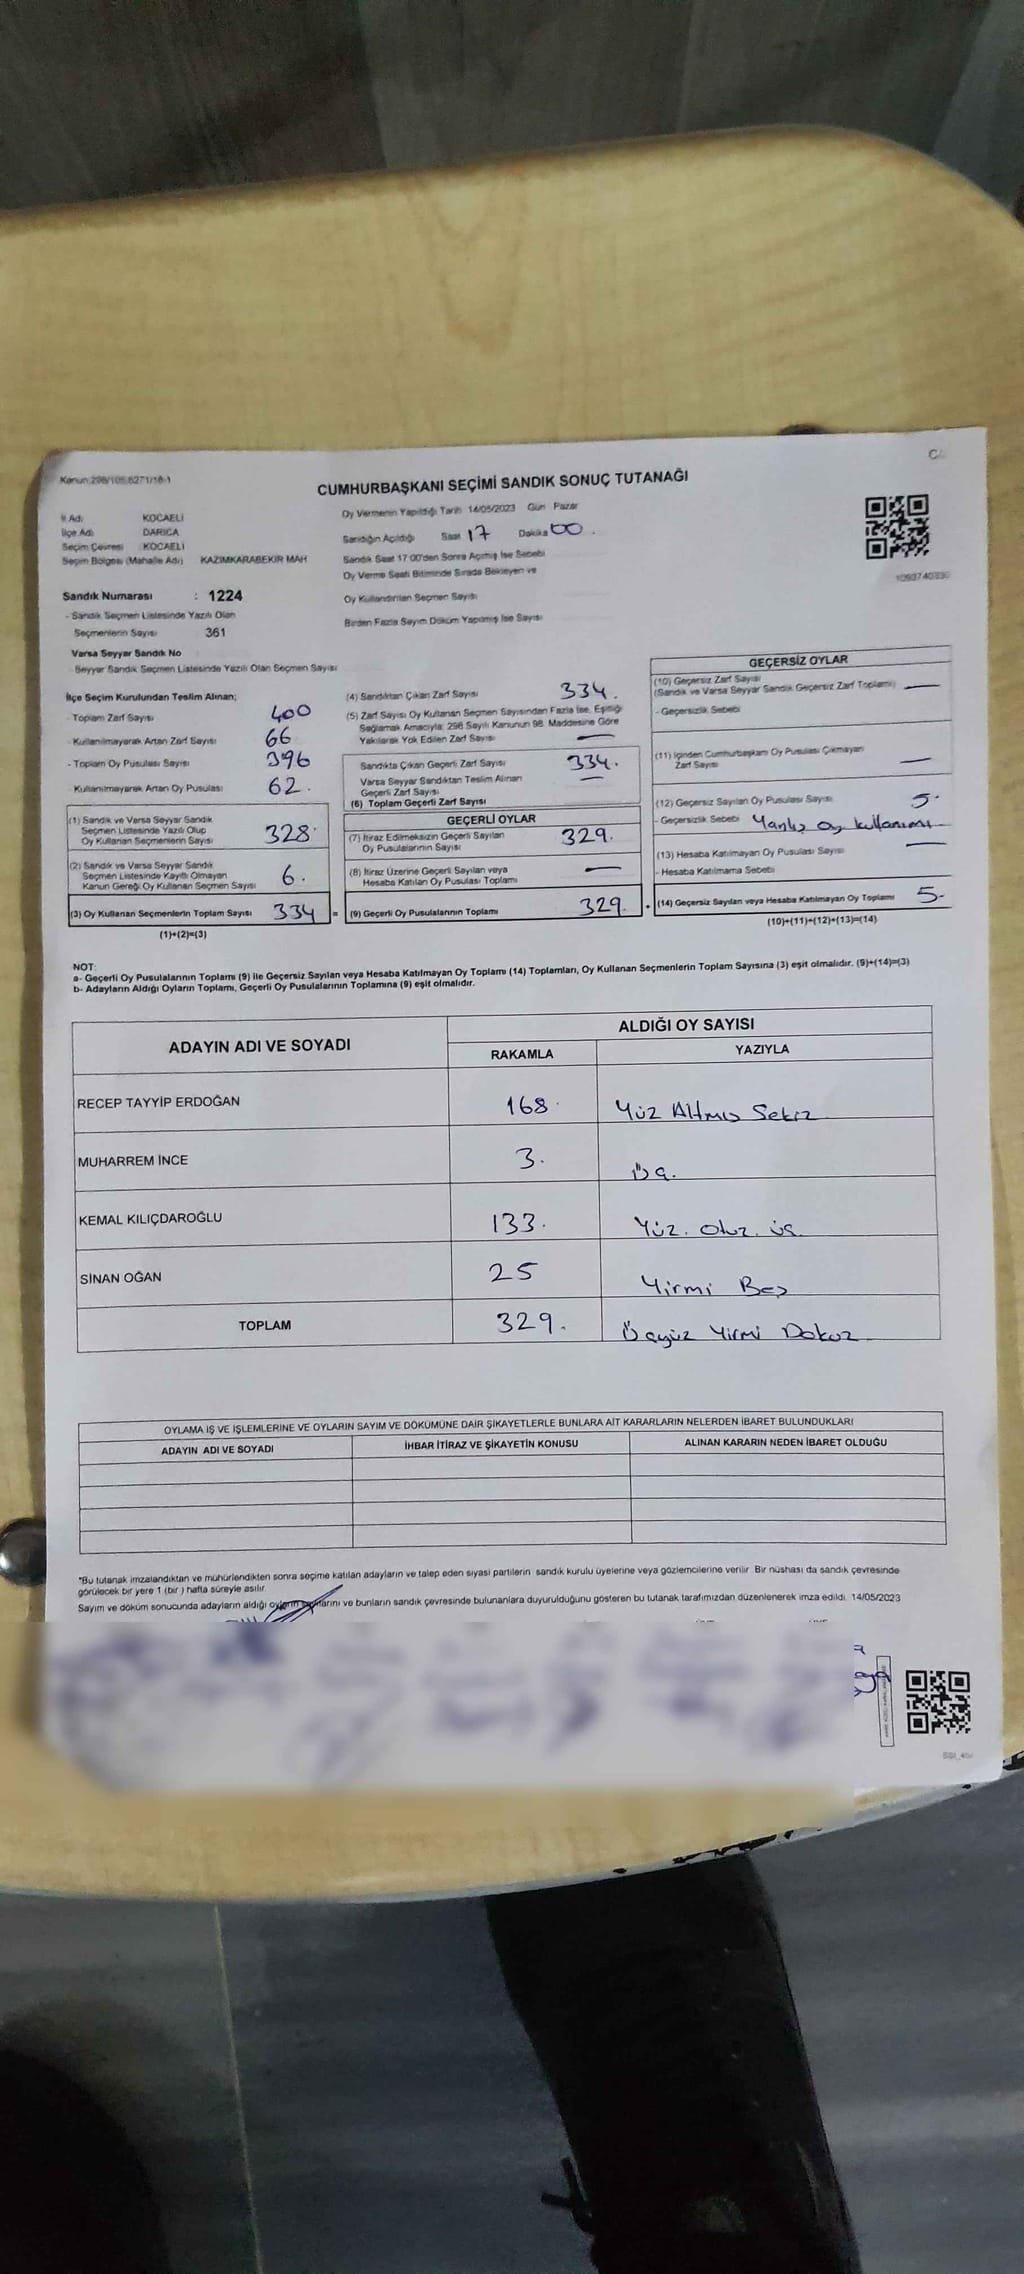 Kanun:298/105,6271/18-1
CUMHURBAŞKANI SEÇİMİ SANDIK SONUÇ TUTANAĞI
İl Adı KOCAELİ
İlçe Adı DARICA
Seçim Çevresi KOCAELİ
Seçim Bölgesi (Mahalle Adı) KAZIMKARABEKİR MAH
Oy Vermenin Yapıldığı Tarih 14/05/2023 Gün Pazar
Sandığın Açıldığı Saat 17 Dakika 00.
Sandık Saat 17:00'den Sonra Açmış İse Sebebi
Oy Verme Saati Bitiminde Sırada Bekleyen ve
Oy Kullandırılan Seçmen Sayısı
Birden Fazla Sayım Döküm Yapılmış İse Sayısı
Sandık Numarası : 1224
- Sandık Seçmen Listesinde Yazılı Olan
Seçmenlerin Sayısı 361
Varsa Seyyar Sandık No
- Seyyar Sandık Seçmen Listesinde Yazılı Olan Seçmen Sayısı
İlçe Seçim Kurulundan Teslim Alınan;
- Toplam Zarf Sayısı 400
- Kullanılmayarak Artan Zarf Sayısı 66
- Toplam Oy Pusulası Sayısı 396
- Kullanılmayarak Artan Oy Pusulası 62.
(1) Sandık ve Varsa Seyyar Sandık
Seçmen Listesinde Yazılı Olup
Oy Kullanan Seçmenlerin Sayısı 328.
(2) Sandık ve Varsa Seyyar Sandık
Seçmen Listesinde Kayıtlı Olmayan
Kanun Gereği Oy Kullanan Seçmen Sayısı 6.
(3) Oy Kullanan Seçmenlerin Toplam Sayısı 334 =
(1)+(2)=(3)
(4) Sandıktan Çıkan Zarf Sayısı 334.
(5) Zarf Sayısı Oy Kullanan Seçmen Sayısından Fazla İse, Eşitliği
Sağlamak Amacıyla; 298 Sayılı Kanunun 98. Maddesine Göre
Yakılarak Yok Edilen Zarf Sayısı —
Sandıkta Çıkan Geçerli Zarf Sayısı 334.
Varsa Seyyar Sandıktan Teslim Alınan
Geçerli Zarf Sayısı —
(6) Toplam Geçerli Zarf Sayısı
GEÇERLİ OYLAR
(7) İtiraz Edilmeksizin Geçerli Sayılan
Oy Pusulalarının Sayısı 329.
(8) İtiraz Üzerine Geçerli Sayılan veya
Hesaba Katılan Oy Pusulası Toplamı —
(9) Geçerli Oy Pusulalarının Toplamı 329. +
GEÇERSİZ OYLAR
(10) Geçersiz Zarf Sayısı
(Sandık ve Varsa Seyyar Sandık Geçersiz Zarf Toplamı) —
- Geçersizlik Sebebi
(11) İçinden Cumhurbaşkanı Oy Pusulası Çıkmayan
Zarf Sayısı —
(12) Geçersiz Sayılan Oy Pusulası Sayısı 5.
- Geçersizlik Sebebi Yanlış oy kullanımı
(13) Hesaba Katılmayan Oy Pusulası Sayısı —
- Hesaba Katılmama Sebebi
(14) Geçersiz Sayılan veya Hesaba Katılmayan Oy Toplamı 5-
(10)+(11)+(12)+(13)=(14)
NOT:
a- Geçerli Oy Pusulalarının Toplamı (9) ile Geçersiz Sayılan veya Hesaba Katılmayan Oy Toplamı (14) Toplamları, Oy Kullanan Seçmenlerin Toplam Sayısına (3) eşit olmalıdır. (9)+(14)=(3)
b- Adayların Aldığı Oyların Toplamı, Geçerli Oy Pusulalarının Toplamına (9) eşit olmalıdır.
ADAYIN ADI VE SOYADI
ALDIĞI OY SAYISI
RAKAMLA YAZIYLA
RECEP TAYYİP ERDOĞAN 168. Yüz Altmış Sekiz
MUHARREM İNCE 3. Üç.
KEMAL KILIÇDAROĞLU 133. Yüz. Otuz. üç.
SİNAN OĞAN 25 Yirmi Beş
TOPLAM 329. Üçyüz Yirmi Dokuz
OYLAMA İŞ VE İŞLEMLERİNE VE OYLARIN SAYIM VE DÖKÜMÜNE DAİR ŞİKAYETLERLE BUNLARA AİT KARARLARIN NELERDEN İBARET BULUNDUKLARI
ADAYIN ADI VE SOYADI İHBAR İTİRAZ VE ŞİKAYETİN KONUSU ALINAN KARARIN NEDEN İBARET OLDUĞU
*Bu tutanak imzalandıktan ve mühürlendikten sonra seçime katılan adayların ve talep eden siyasi partilerin sandık kurulu üyelerine veya gözlemcilerine verilir. Bir nüshası da sandık çevresinde
görülecek bir yere 1 (bir) hafta süreyle asılır.
Sayım ve döküm sonucunda adayların aldığı oyların sayılarını ve bunların sandık çevresinde bulunanlara duyurulduğunu gösteren bu tutanak tarafımızdan düzenlenerek imza edildi. 14/05/2023